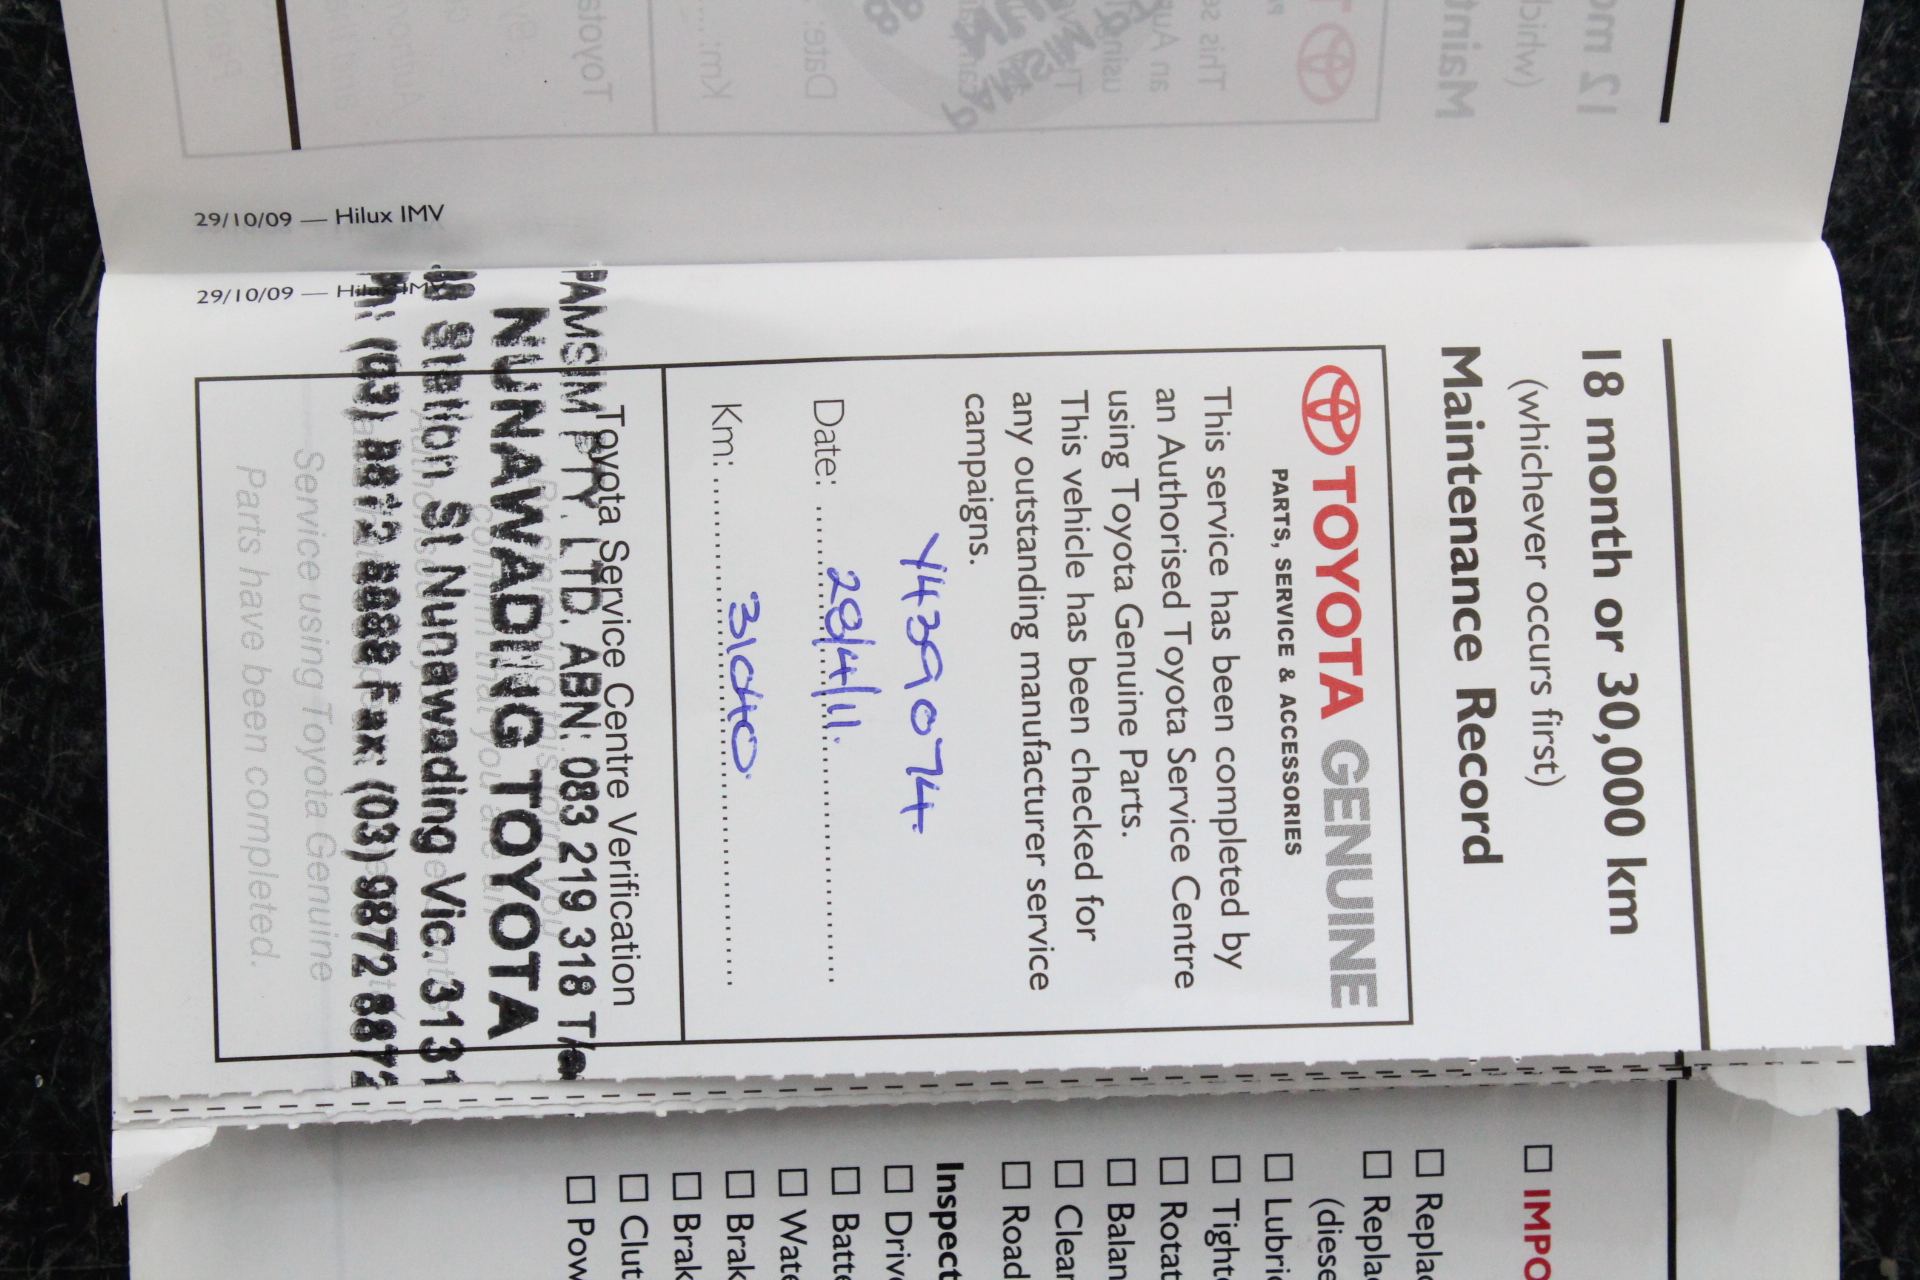 29/10/09 — Hilux IMV
29/10/09 — Hilux IMV
18 month or 30,000 km
(whichever occurs first)
Maintenance Record
TOYOTA GENUINE
PARTS, SERVICE & ACCESSORIES
This service has been completed by
an Authorised Toyota Service Centre
using Toyota Genuine Parts.
This vehicle has been checked for
any outstanding manufacturer service
campaigns.
Y439074
Date: 28/4/11.
Km: 31040
Toyota Service Centre Verification
PAMSIM PTY. LTD. ABN: 083 219 318 T/as
NUNAWADING TOYOTA
Station St Nunawading Vic. 3131
Ph: (03) 9872 8888 Fax: (03) 9872 8872
By stamping this form you
confirm that you are an
Service using Toyota Genuine
Parts have been completed.
IMPO
Replac
Replac
(diese
Lubric
Tighte
Rotat
Balan
Clean
Road
Inspect
Drive
Batte
Wate
Brak
Brak
Clut
Pow